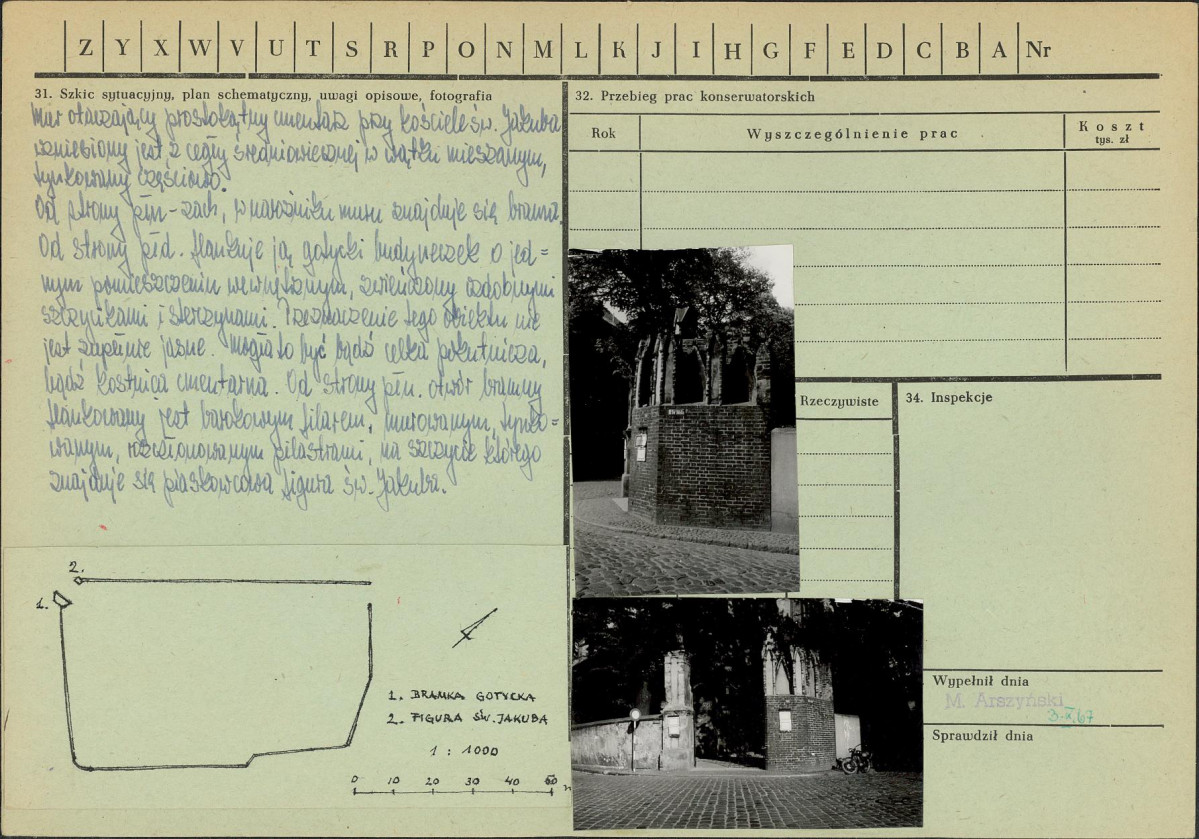 Z Y X W V U T S R P O N M L K J I H G F E D C B A Nr
31. Szkic sytuacyjny, plan schematyczny, uwagi opisowe, fotografia
Mur otaczający prostokątny cmentarz przy kościele św. Jakuba
wzniesiony jest z cegły średniowiecznej w wątku mieszanym,
tynkowany częściowo.
Od strony płn-zach, w narożniku muru znajduje się brama.
Od strony płd. flankuje ją gotycki budyneczek o jed=
nym pomieszczeniu wewnętrznym, zwieńczony ozdobnymi
szczycikami i sterczynami. Przeznaczenie tego obiektu nie
jest zupełnie jasne. Mogła to być bądź celka pokutnicza,
bądź kostnica cmentarna. Od strony płn. otwór bramny
flankowany jest barokowym filarem, murowanym, tynko=
wanym, rozczłonowanym pilastrami, na szczycie którego
znajduje się piaskowcowa figura św. Jakuba.
2.
1.
1. BRAMKA GOTYCKA
2. FIGURA ŚW. JAKUBA
1 : 1000
0 10 20 30 40 50 m
32. Przebieg prac konserwatorskich
Rok Wyszczególnienie prac Koszt
tys. zł
Rzeczywiste
34. Inspekcje
Wypełnił dnia
M. Arszyński
3.X.67
Sprawdził dnia